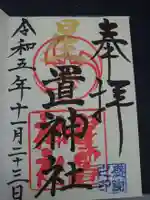 奉拝
星置神社
令和五年十一月二十三日